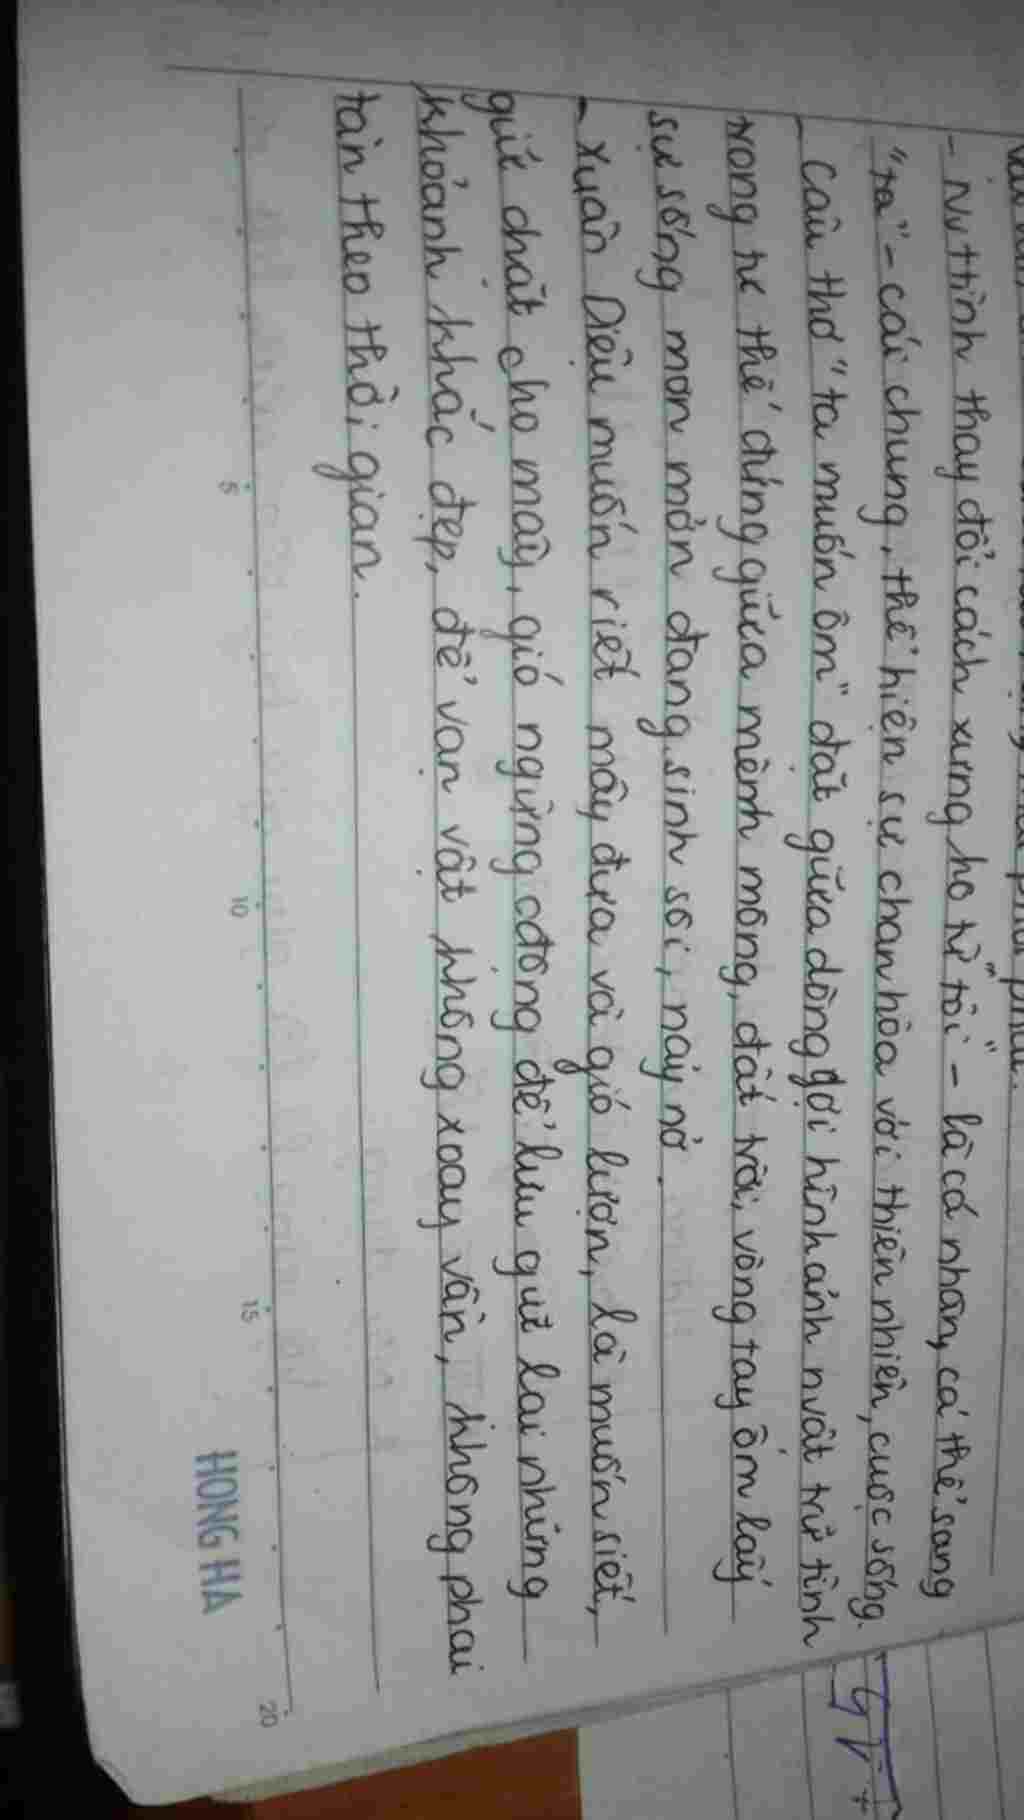 - Nv thình thay đổi cách xưng hô từ "tôi" - là cá nhân, cá thể sang
"ta" - cái chung, thể hiện sự chan hòa với thiên nhiên, cuộc sống.
- Câu thơ "ta muốn ôm" đặt giữa dòng gợi hình ảnh nvật trữ tình
trong tư thế đứng giữa mênh mông, đất trời, vòng tay ôm lấy
sự sống mơn mởn đang sinh sôi, nảy nở.
- Xuân Diệu muốn riết mây đưa và gió lượn, là muốn siết,
giữ chặt cho mây, gió ngừng cđộng để lưu giữ lại những
khoảnh khắc đẹp, để vạn vật không xoay vần, không phai
tàn theo thời gian.
5
10
15
20
HONG HA